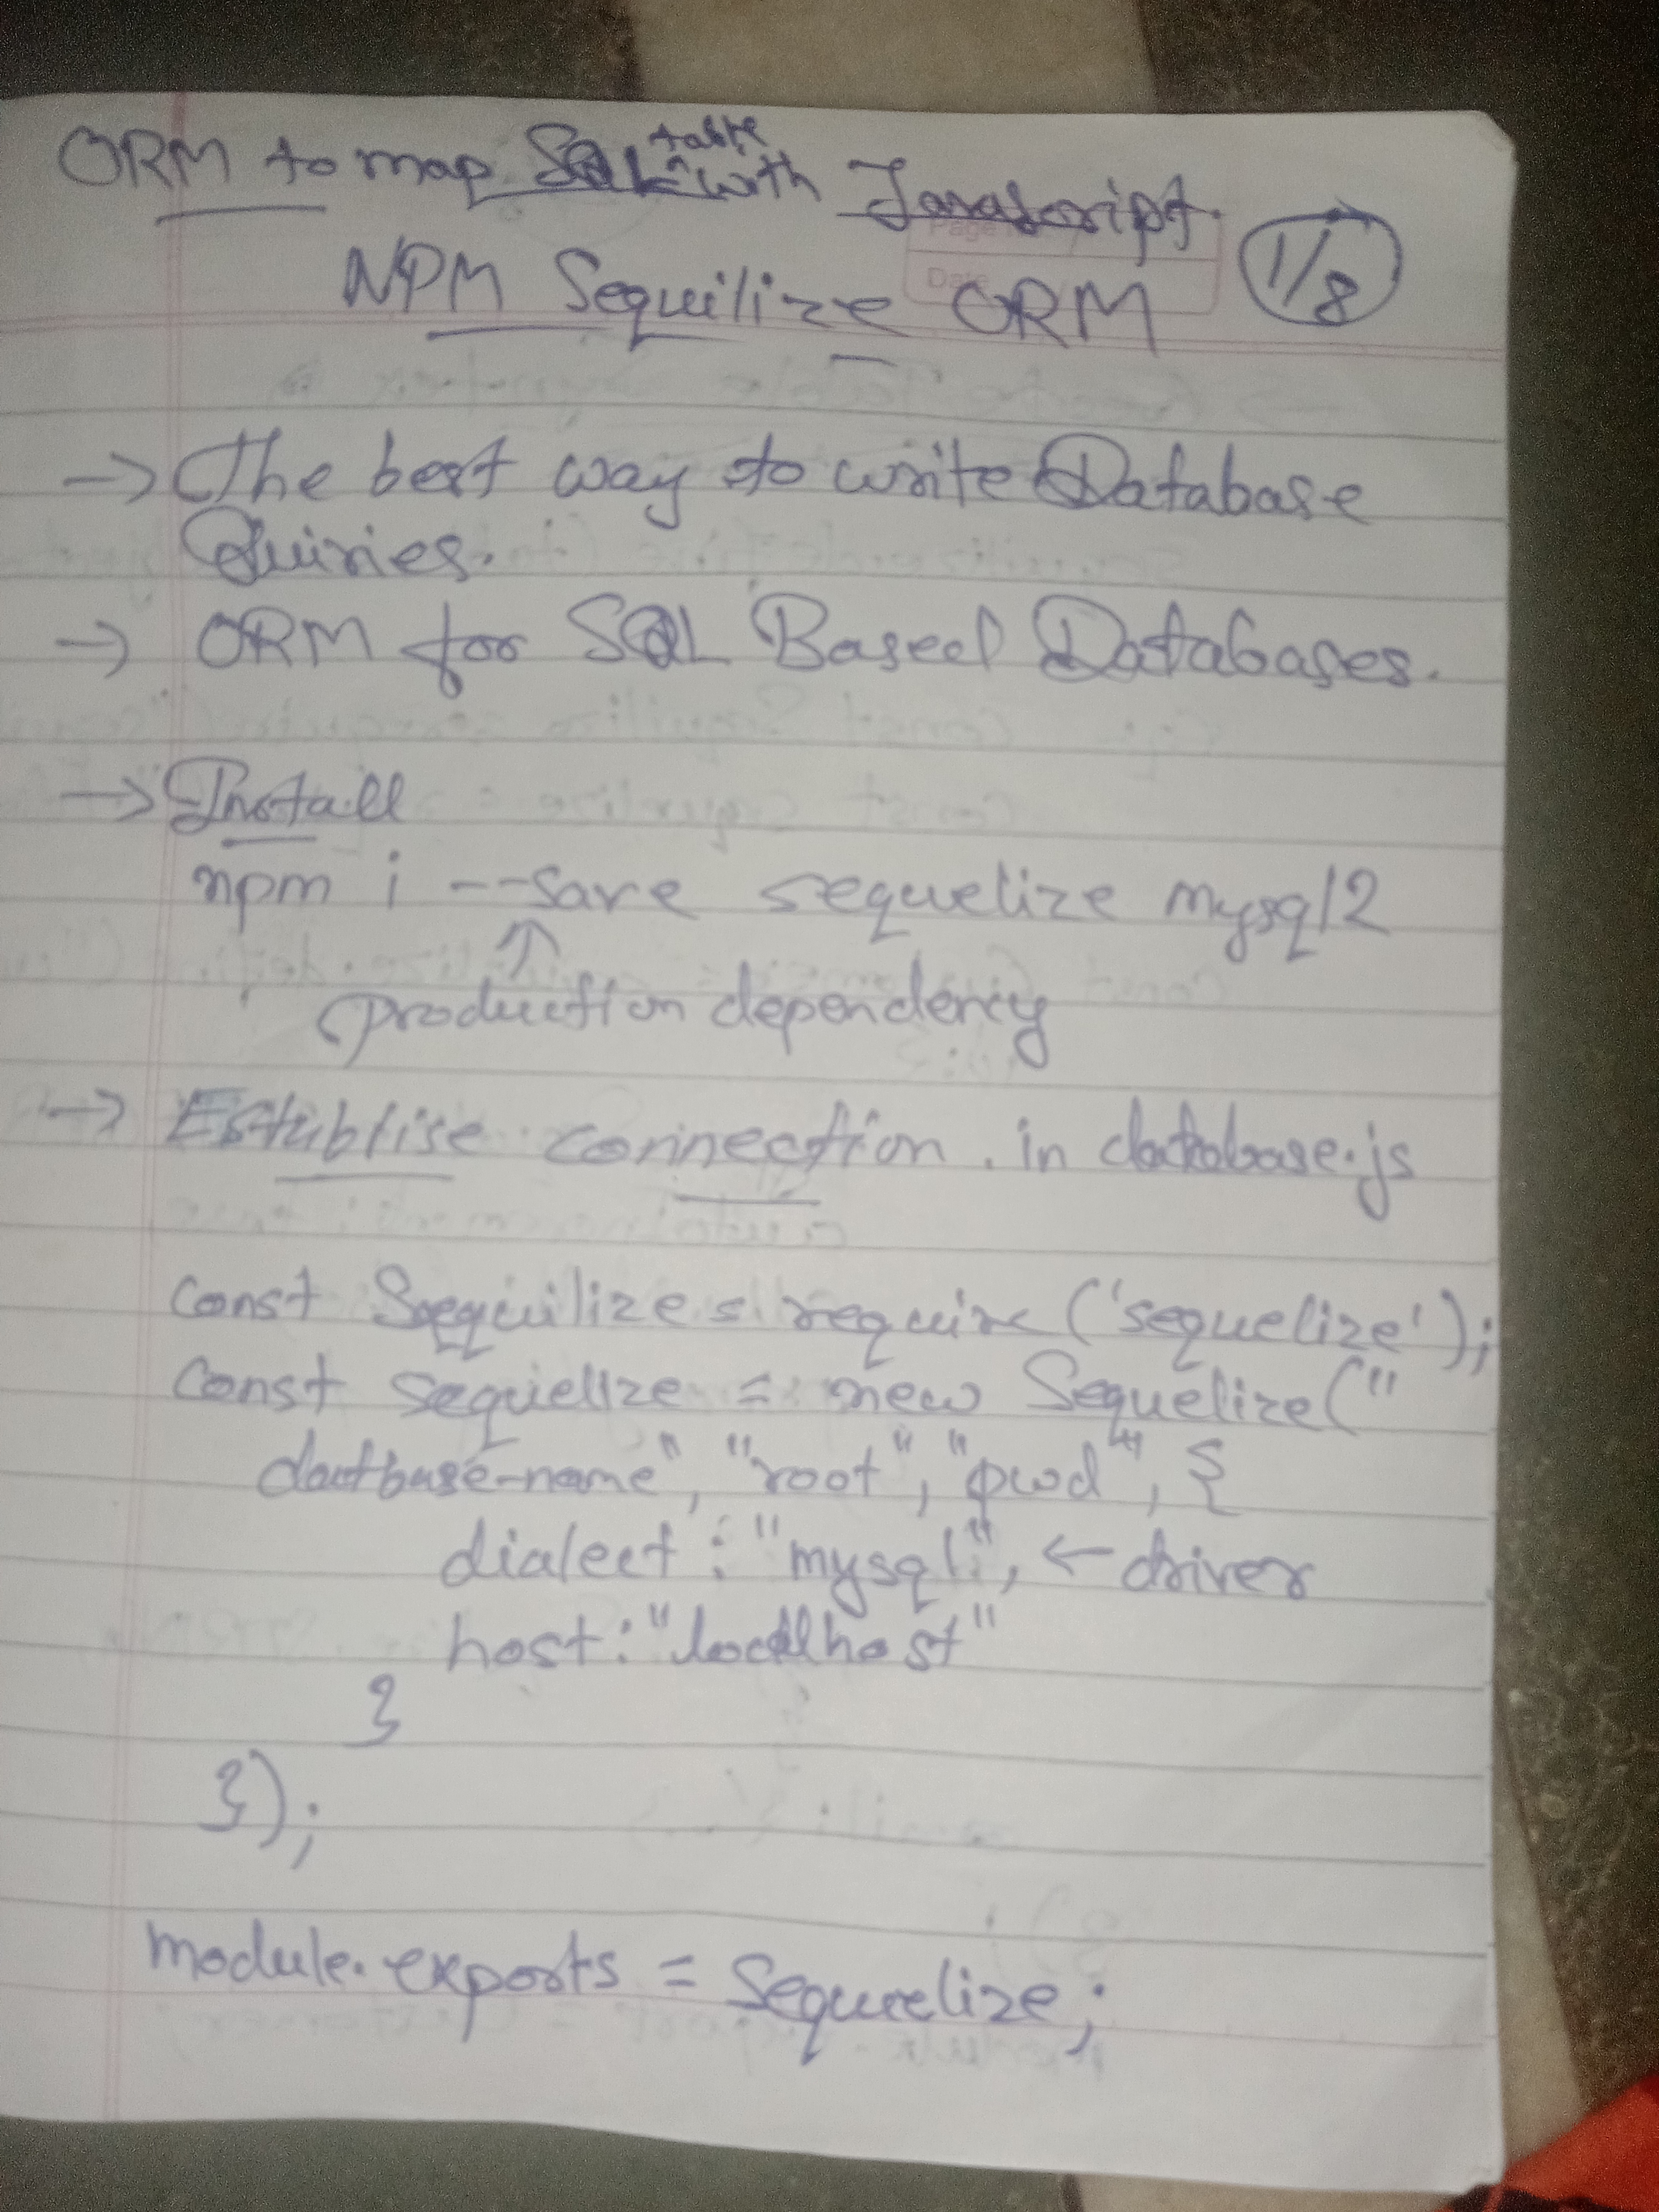 ORM to map SQL table with Javascript.
1/8
NPM Sequilize ORM
→ The best way to write Database
Quiries.
→ ORM for SQL Based Databases.
→ Install
npm i --save sequelize mysql2
↑
production dependency
→ Establise connection . in database.js
const Sequilize = require('sequelize');
const sequielize = new Sequelize("
datbase-name", "root", "pwd", {
dialect : "mysql", ← driver
host : "localhost"
}
});
module.exports = Sequelize;